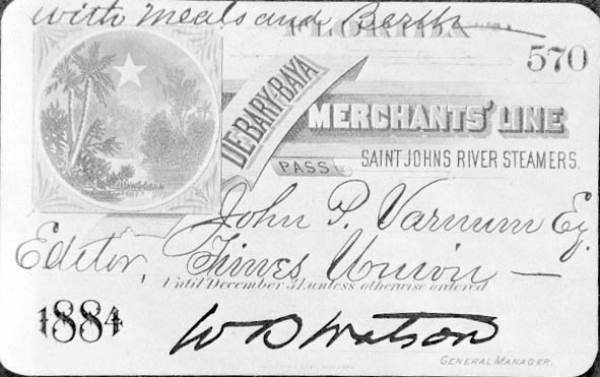 with meals and Berth
FLORIDA
570
DE BARY-BAYA
MERCHANTS' LINE
PASS
SAINT JOHNS RIVER STEAMERS
John P. Varnum Eq.
Editor, Times Union —
Until December 31, unless otherwise ordered
1884
W B Watson
GENERAL MANAGER.